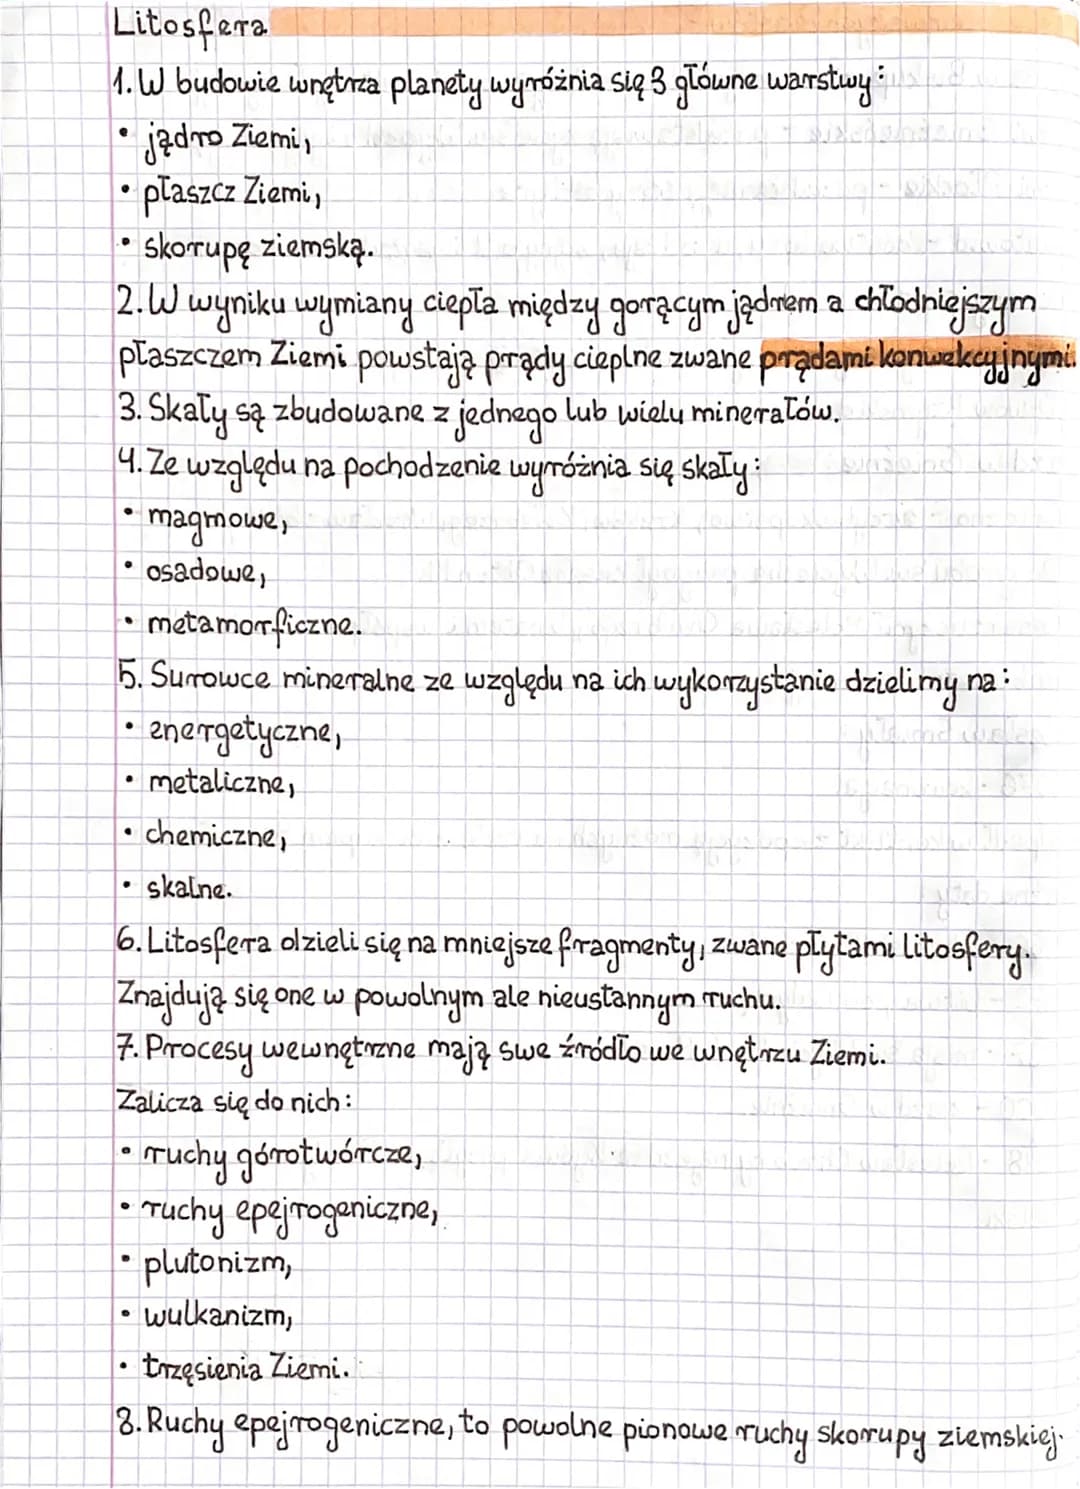 Litosfera
1. W budowie wnętrza planety wyróżnia się 3 główne warstwy:
• jądro Ziemi,
• płaszcz Ziemi,
• skorupę ziemską.
2. W wyniku wymiany ciepła między gorącym jądrem a chłodniejszym
płaszczem Ziemi powstają prądy cieplne zwane prądami konwekcyjnymi.
3. Skały są zbudowane z jednego lub wielu minerałów.
4. Ze względu na pochodzenie wyróżnia się skały:
• magmowe,
• osadowe,
• metamorficzne.
5. Surowce mineralne ze względu na ich wykorzystanie dzielimy na:
• energetyczne,
• metaliczne,
• chemiczne,
• skalne.
6. Litosfera dzieli się na mniejsze fragmenty, zwane płytami litosfery.
Znajdują się one w powolnym ale nieustannym ruchu.
7. Procesy wewnętrzne mają swe źródło we wnętrzu Ziemi.
Zalicza się do nich:
• ruchy górotwórcze,
• ruchy epejrogeniczne,
• plutonizm,
• wulkanizm,
• trzęsienia Ziemi.
8. Ruchy epejrogeniczne, to powolne pionowe ruchy skorupy ziemskiej.